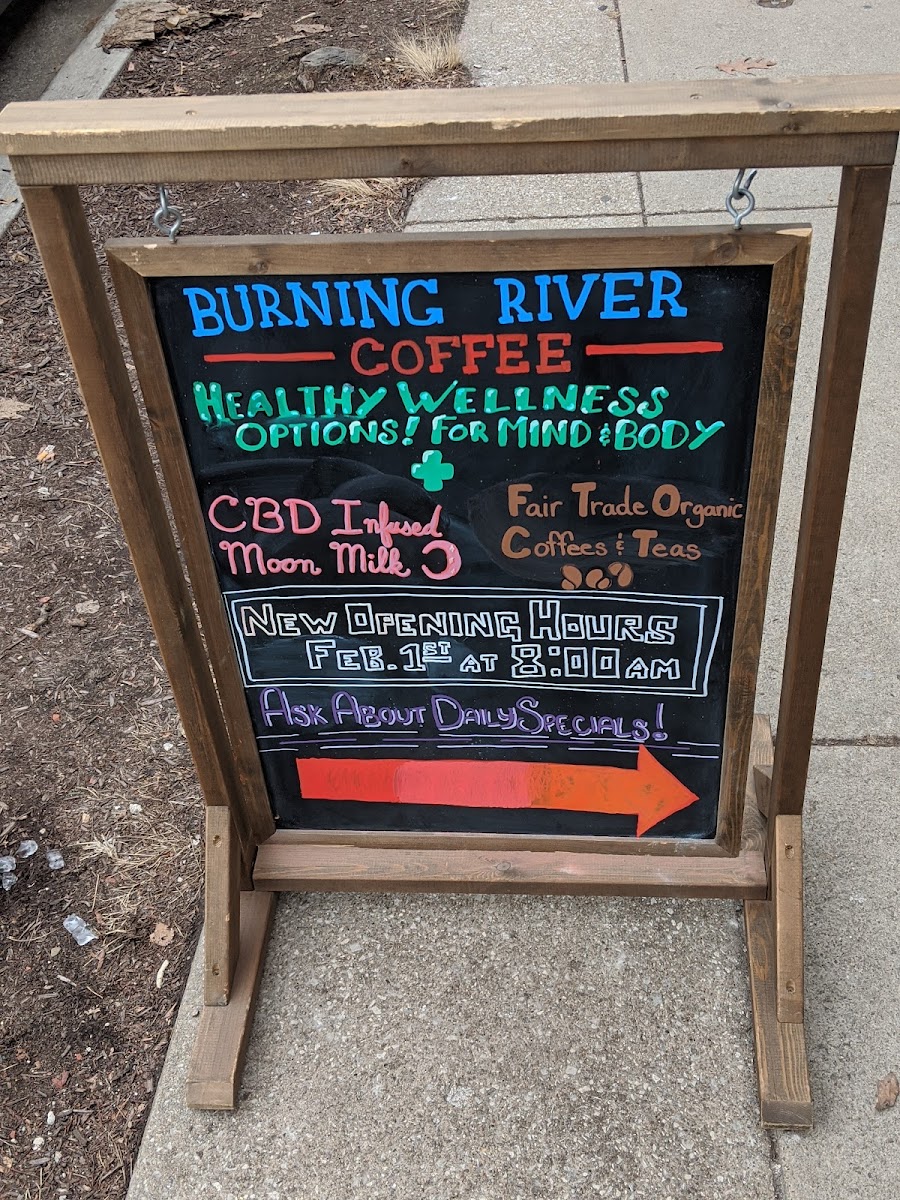 BURNING RIVER
COFFEE
HEALTHY WELLNESS
OPTIONS! FOR MIND & BODY
CBD Infused
Moon Milk
Fair Trade Organic
Coffees & Teas
NEW OPENING HOURS
FEB. 1ST AT 8:00 AM
ASK ABOUT DAILY SPECIALS!